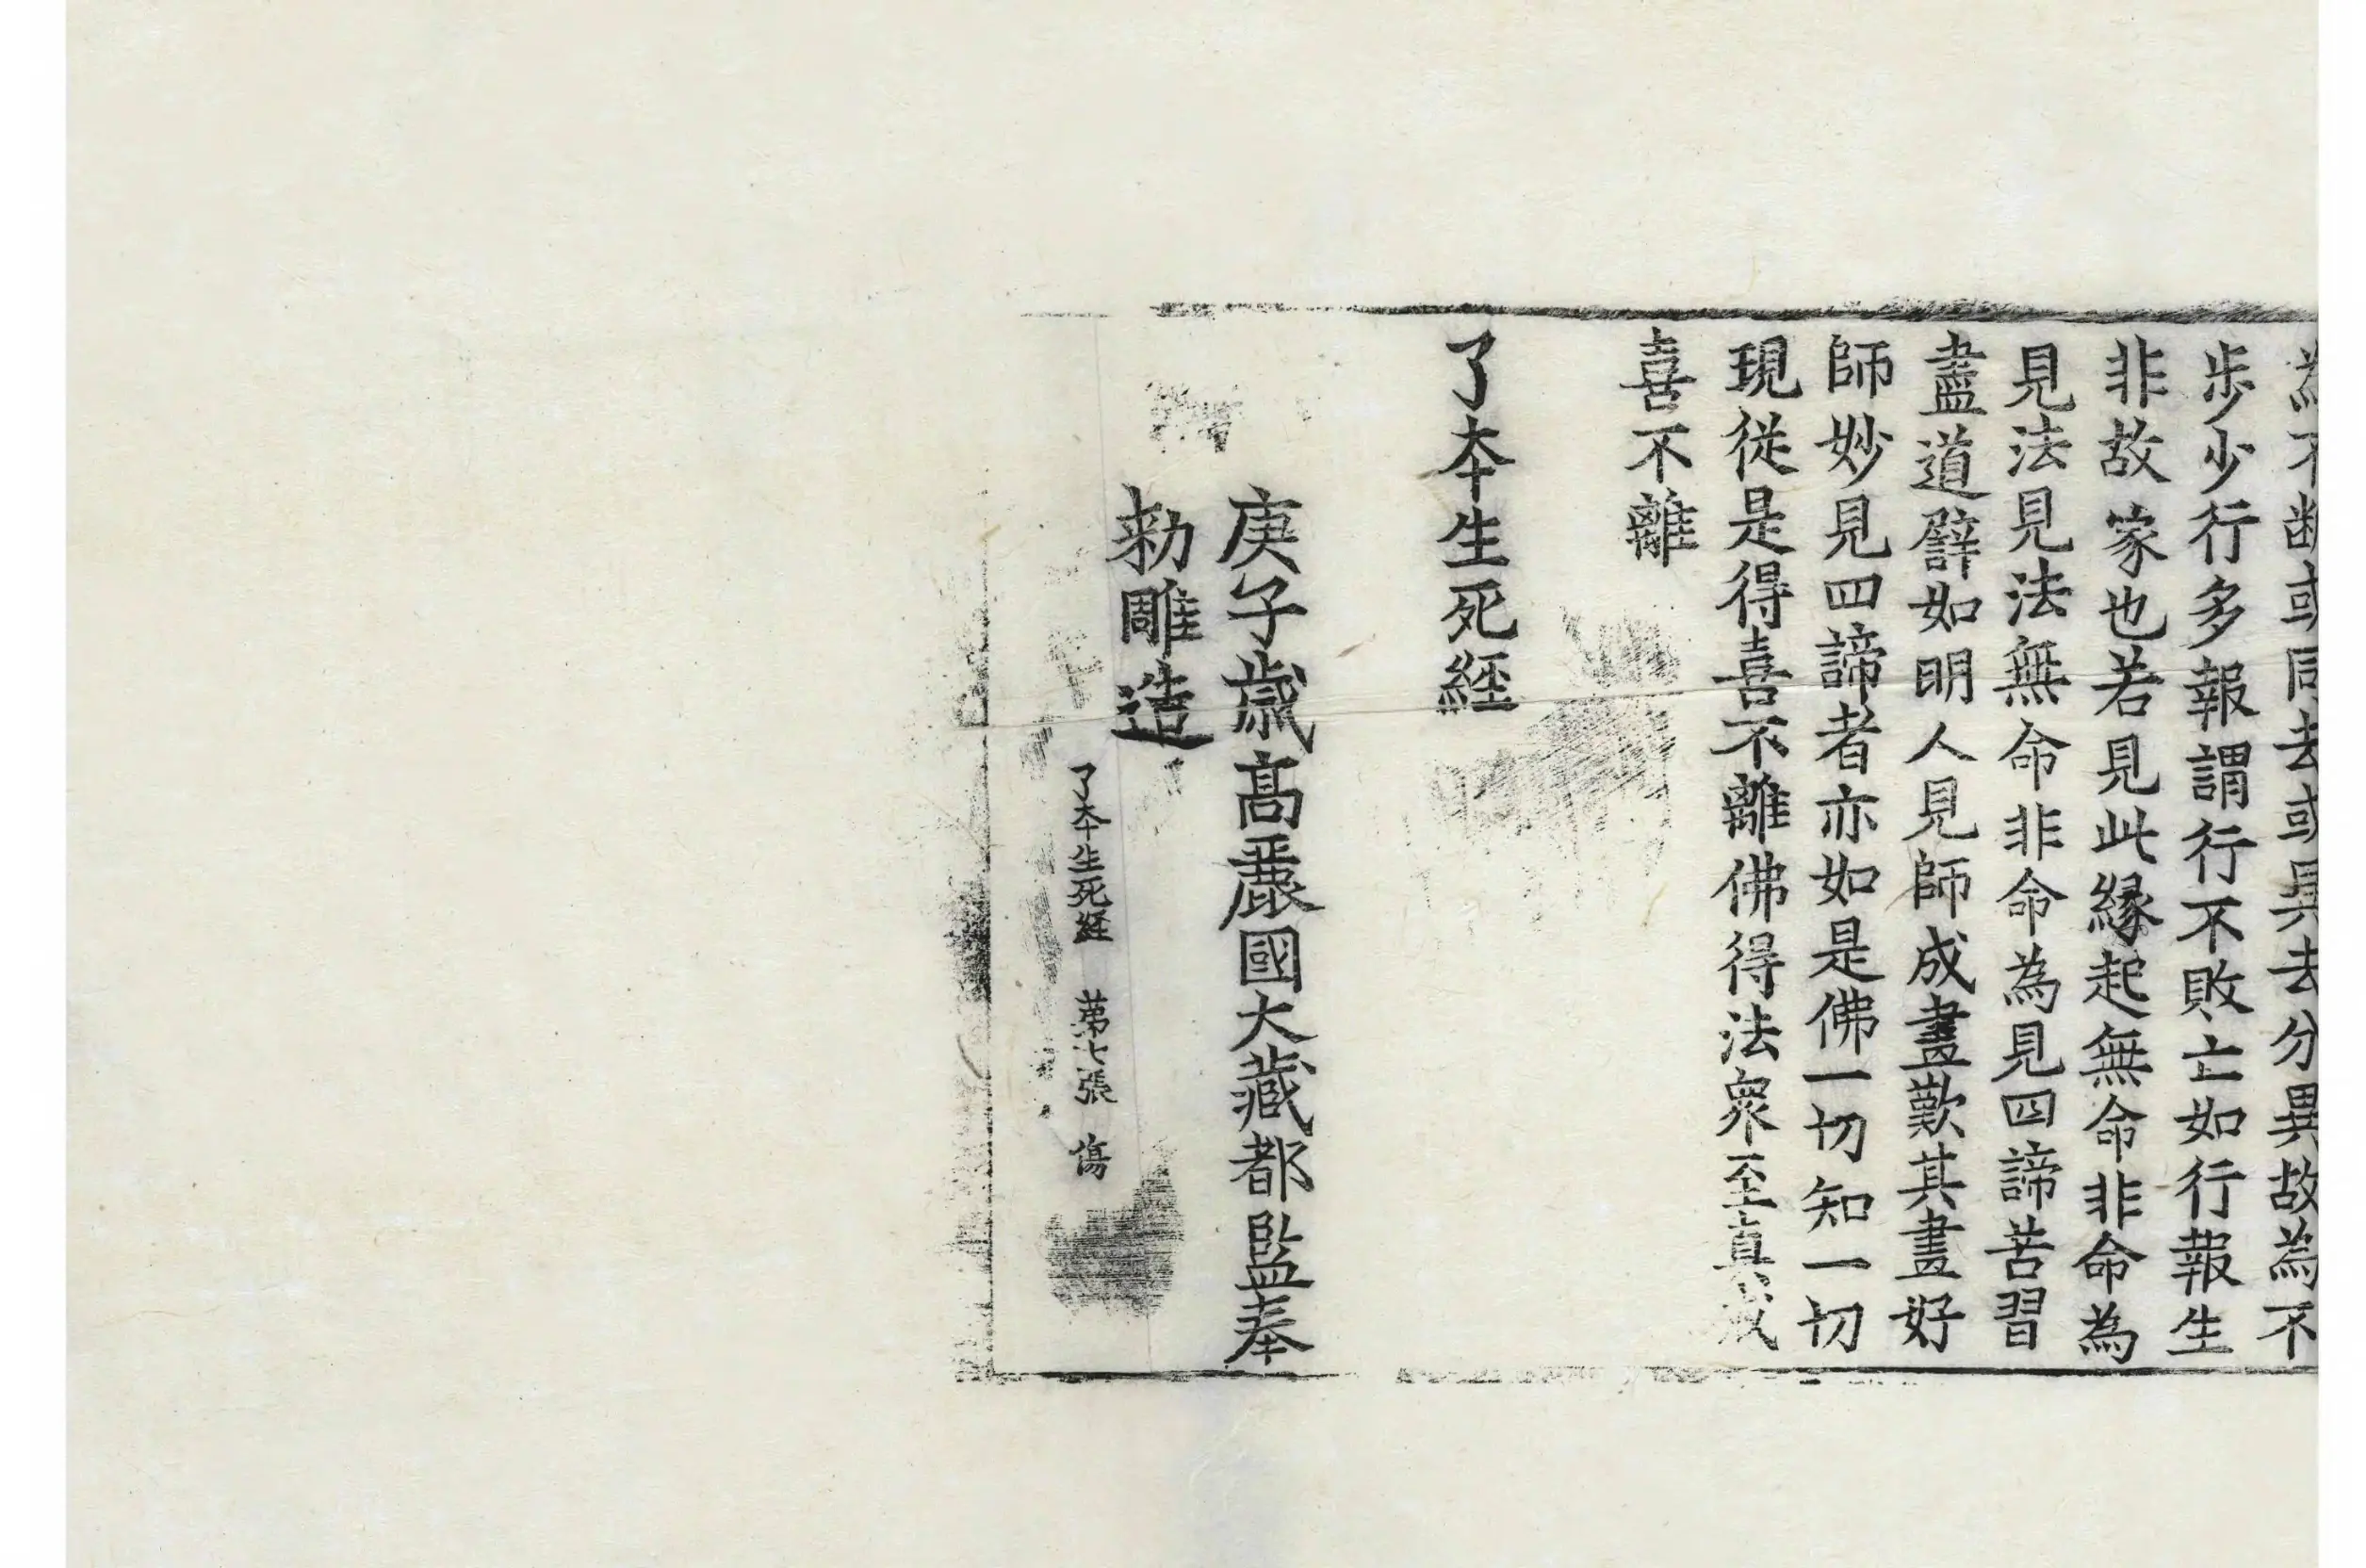 為不断或同去或異去分異故為不
步少行多報謂行不敗亡如行報生
非故家也若見此緣起無命非命為
見法見法無命非命為見四諦苦習
盡道譬如明人見師成畫歎其畫好
師妙見四諦者亦如是佛一切知一切
現從是得喜不離佛得法衆至真戒
喜不離
了夲生死經
庚子歲高麗國大藏都監奉
勅雕造
了夲生死経 苐七張 傷